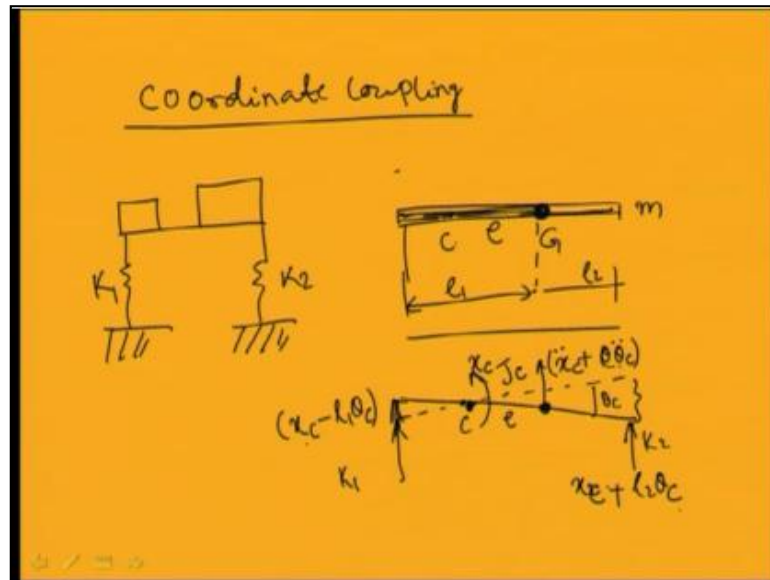 Coordinate Coupling
K1
K2
m
C
e
G
l1
l2
xc
Jc
(ẍc + eθ̈c)
(xc - l1θc)
C
e
θc
K1
K2
xc + l2θc